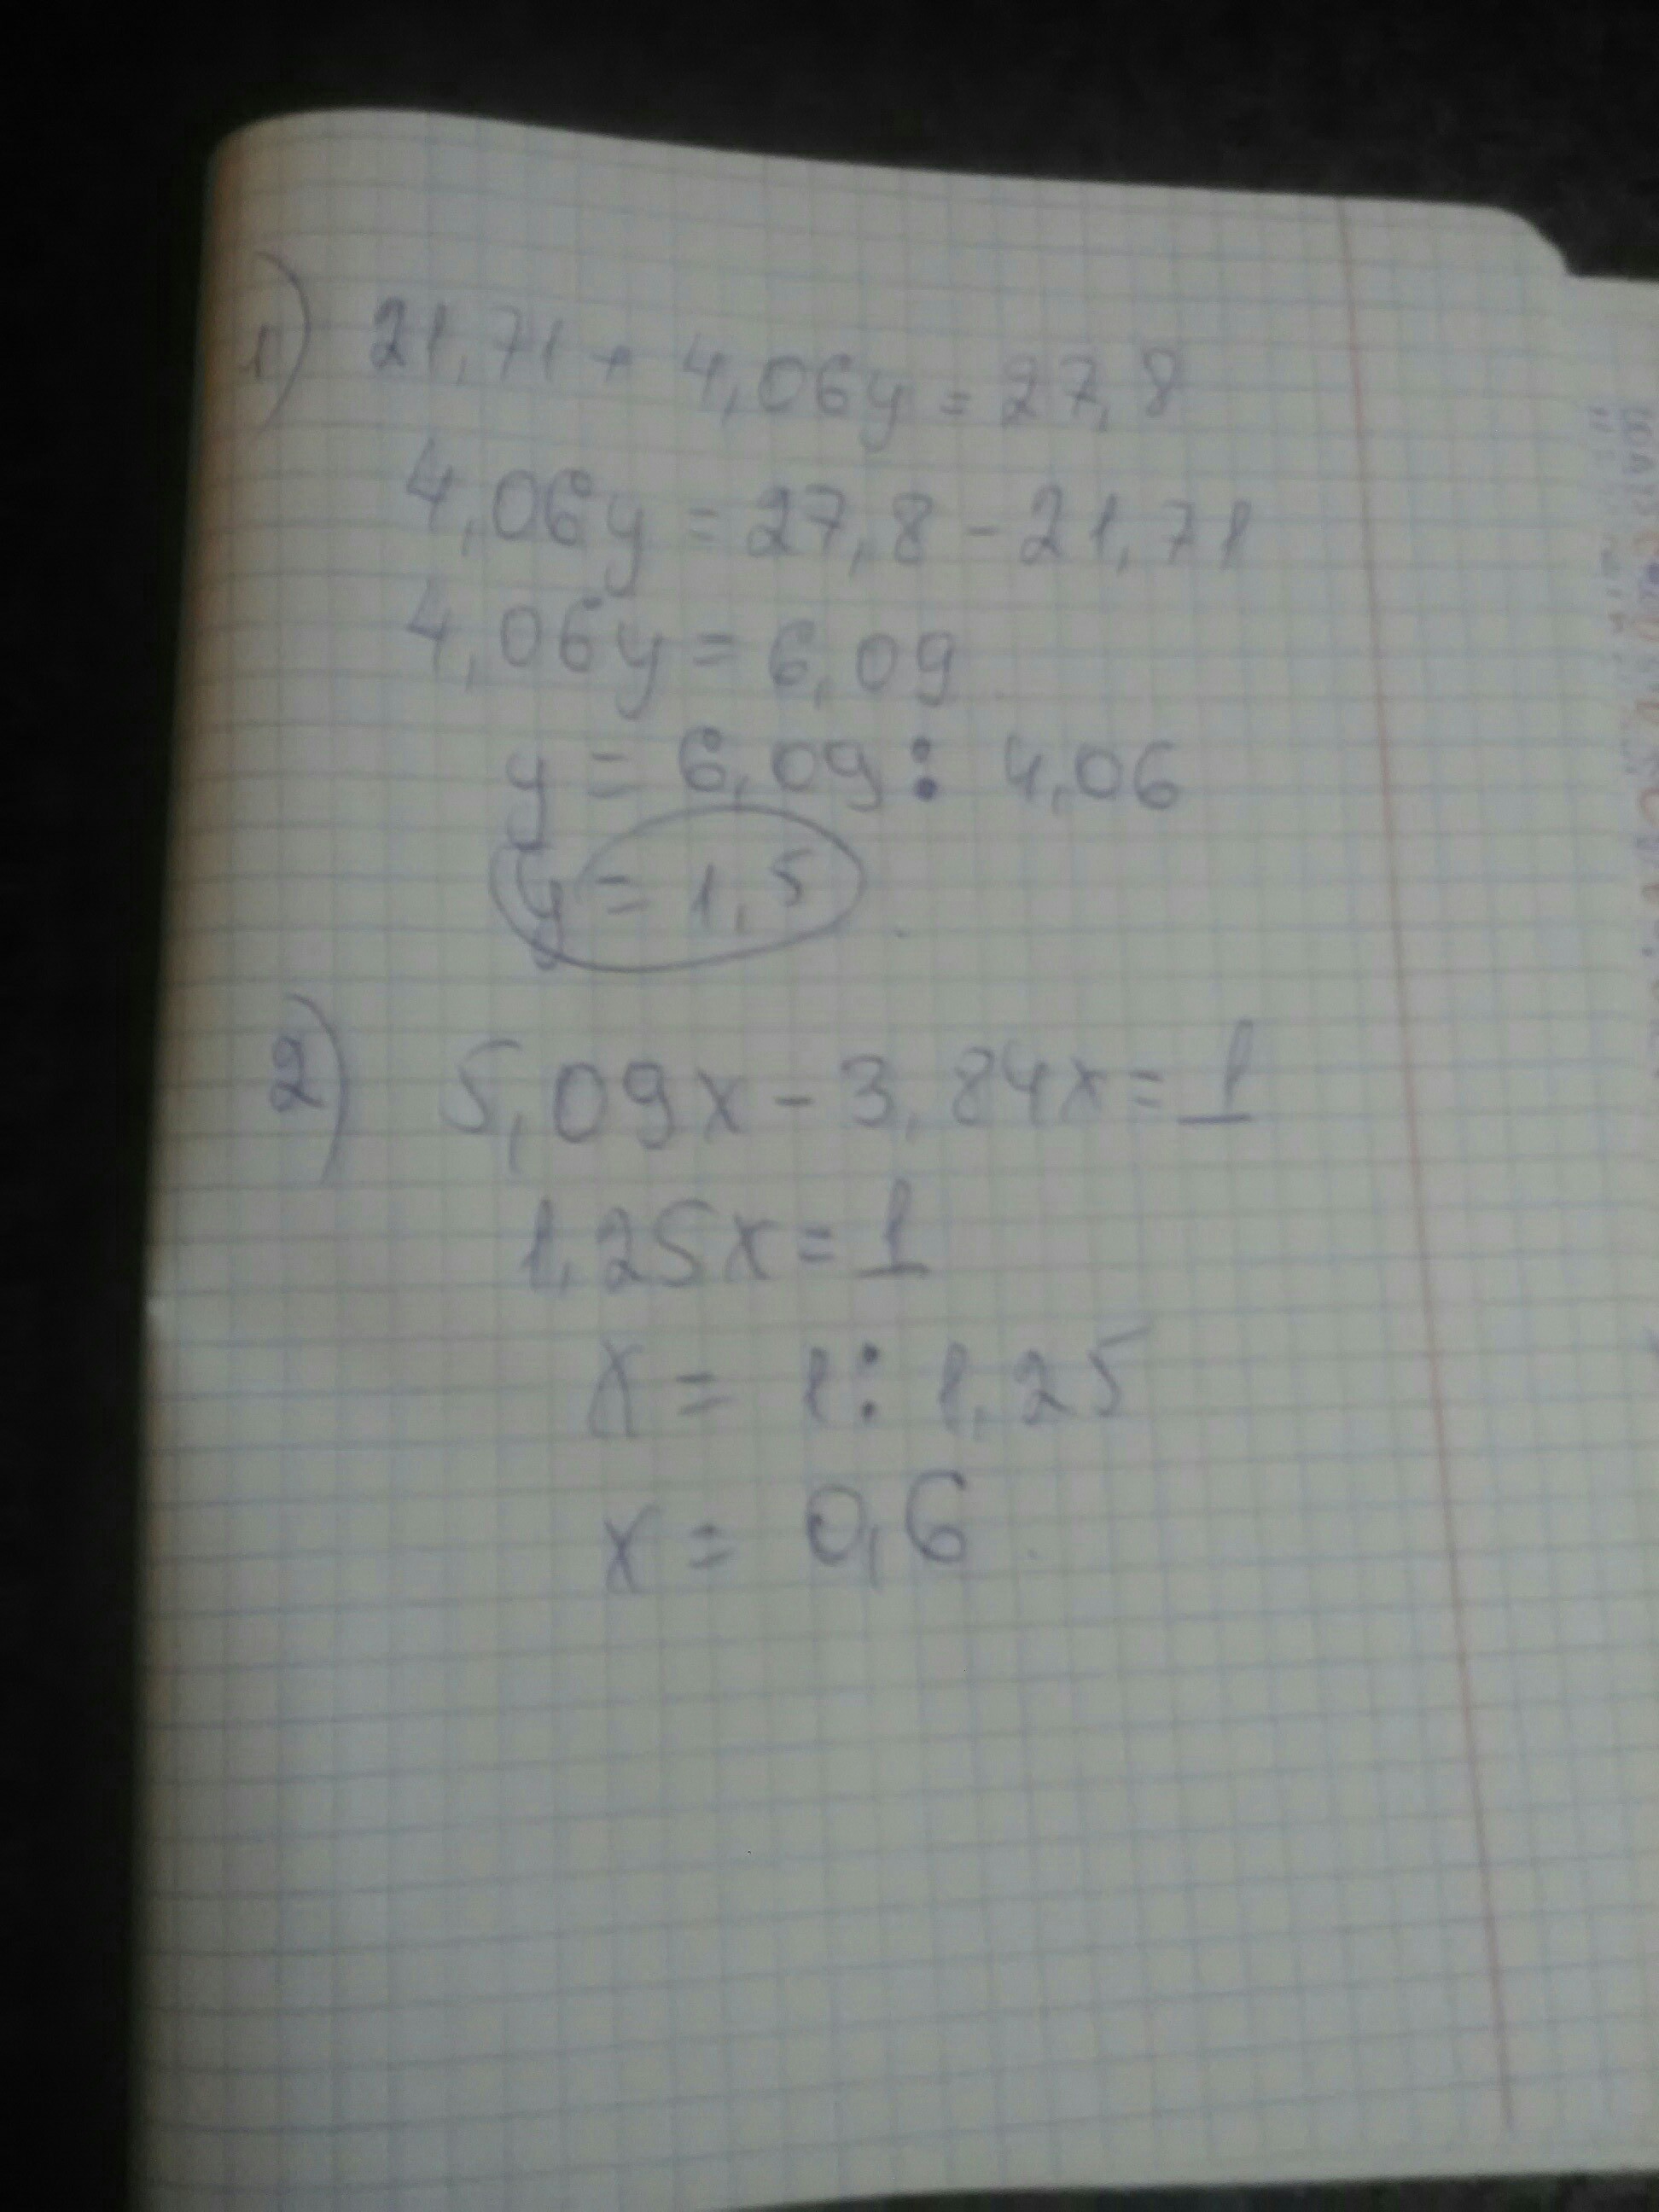 1) 21,71 + 4,06y = 27,8
4,06y = 27,8 - 21,71
4,06y = 6,09
y = 6,09 : 4,06
y = 1,5
2) 5,09x - 3,84x = 1
1,25x = 1
x = 1 : 1,25
x = 0,6